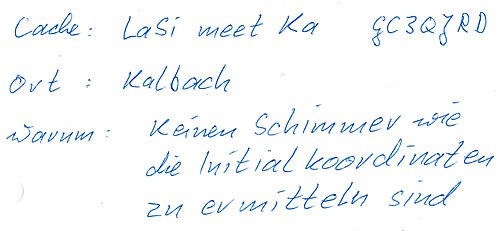 Cache: LaSi meet Ka GC3QJRD
Ort: Kalbach
Warum: Keinen Schimmer wie
die Initialkoordinaten
zu ermitteln sind